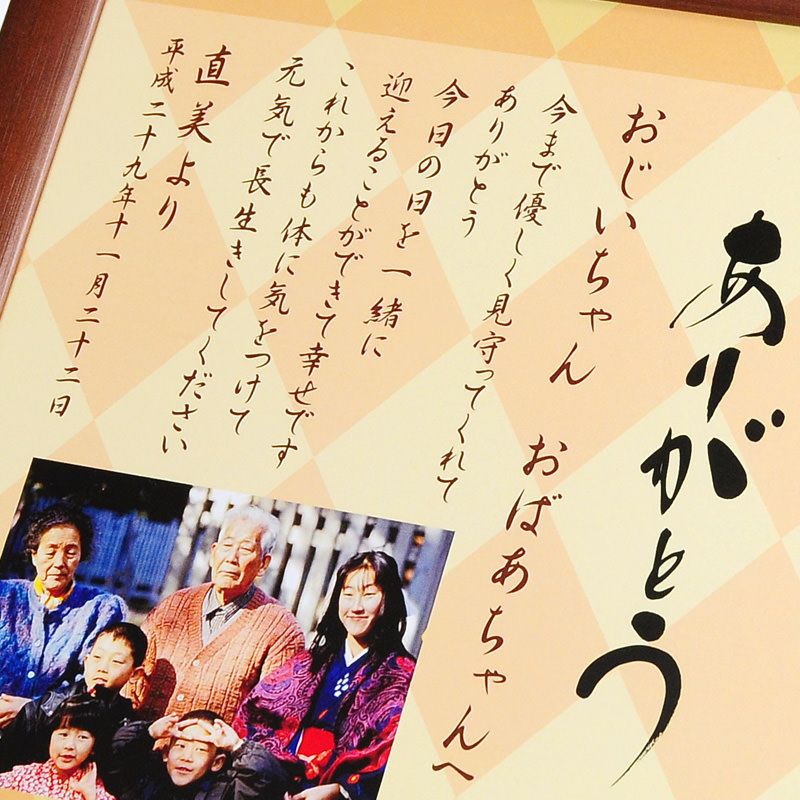 ありがとう
おじいちゃん おばあちゃんへ
今まで優しく見守ってくれて
ありがとう
今日の日を一緒に
迎えることができて幸せです
これからも体に気をつけて
元気で長生きしてください
直美より
平成二十九年十一月二十二日